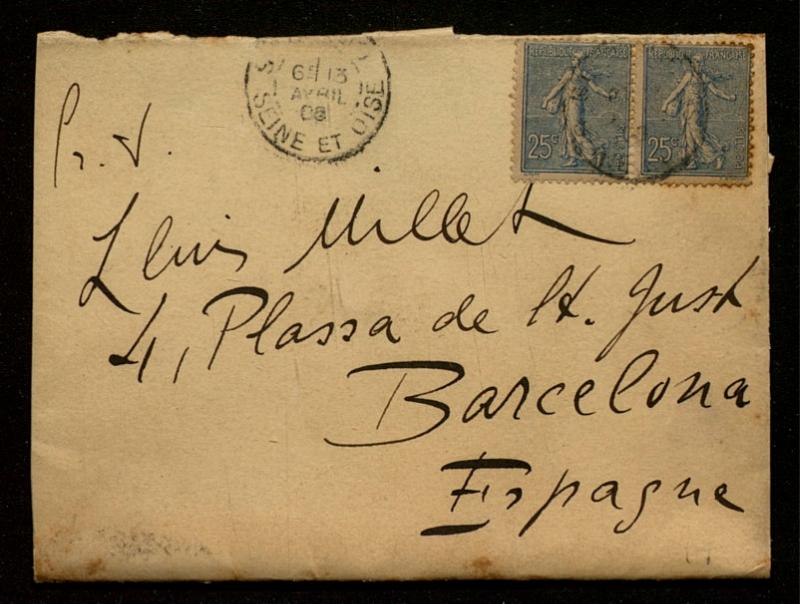 6E 13
AVRIL
06
SEINE ET OISE
REPUBLIQUE FRANÇAISE
25c
REPUBLIQUE FRANÇAISE
25c
POSTES
Sr. D.
Lluis Millet
4, Plassa de St. Just
Barcelona
Espagne